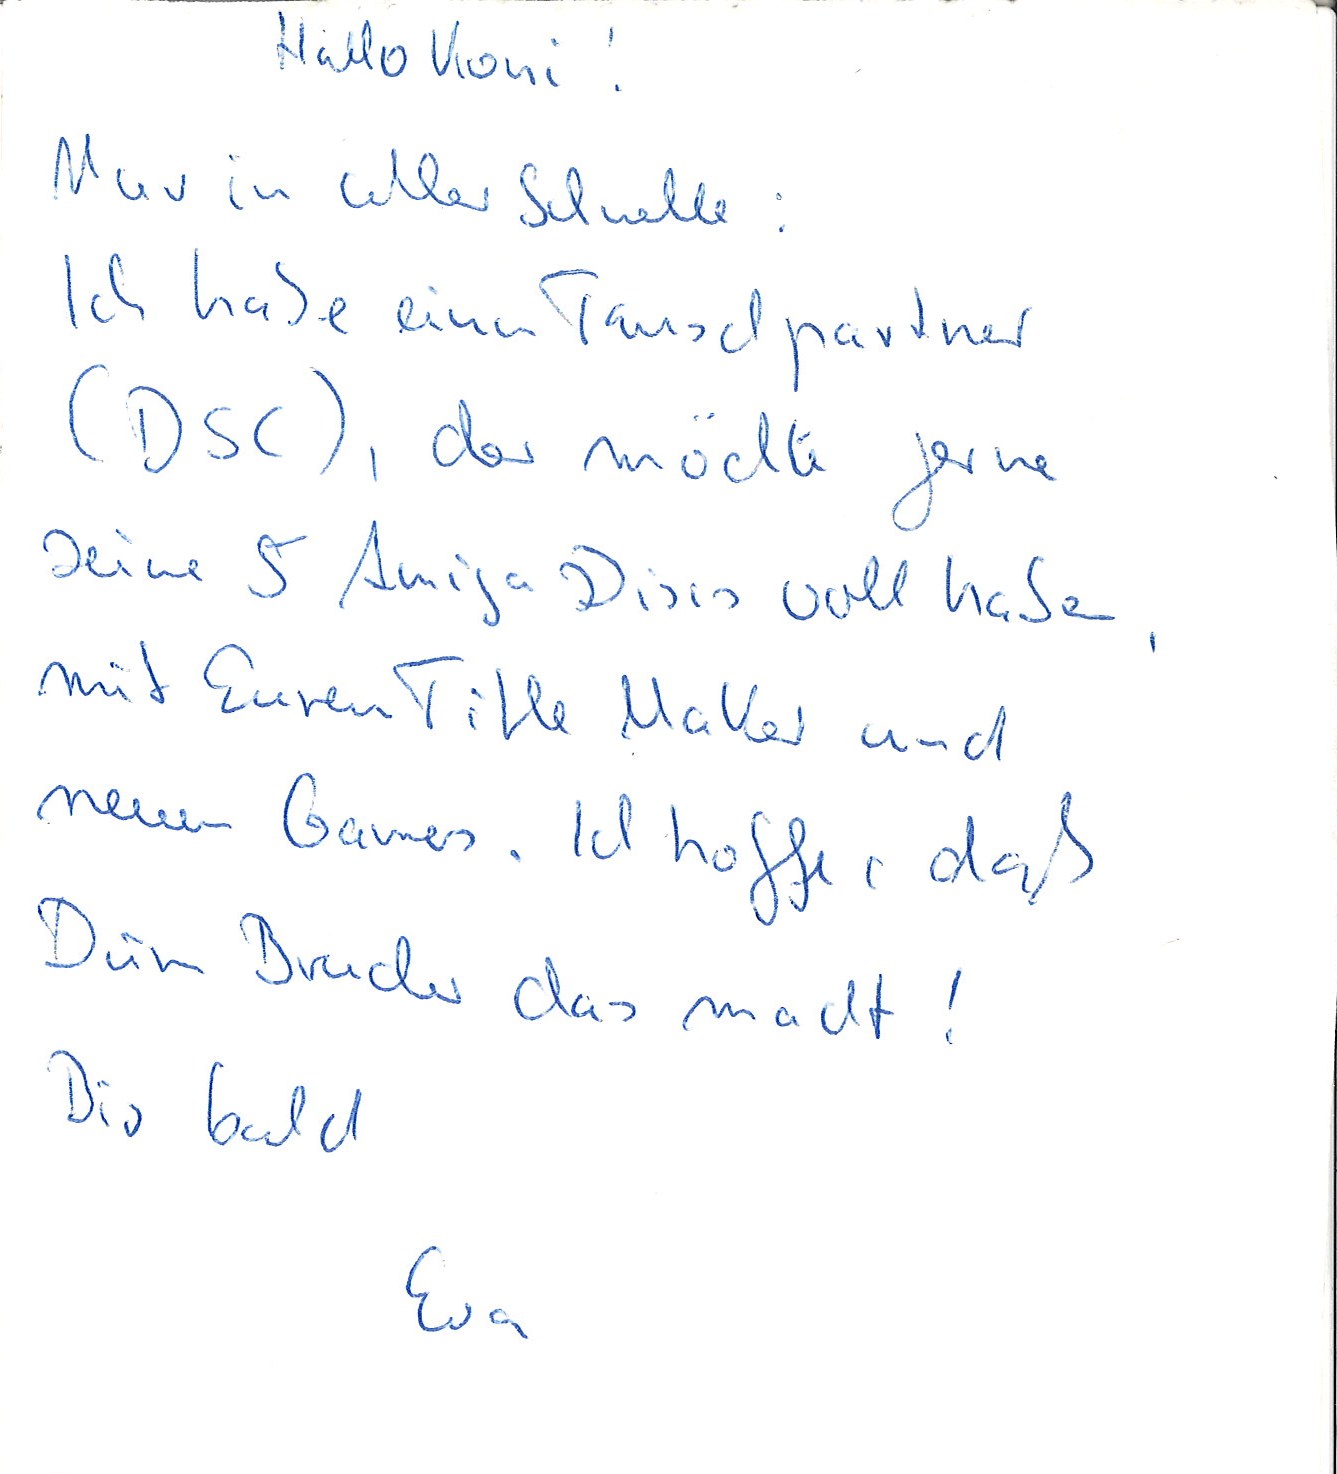 Hallo Koni!
Nur in aller Schnelle:
Ich habe einen Tauschpartner
(DSC), der möchte gerne
seine 5 Amiga Discs voll haben,
mit Euren Title Maker und
neuen Games. Ich hoffe, daß
Dein Bruder das macht!
Bis bald
Eva